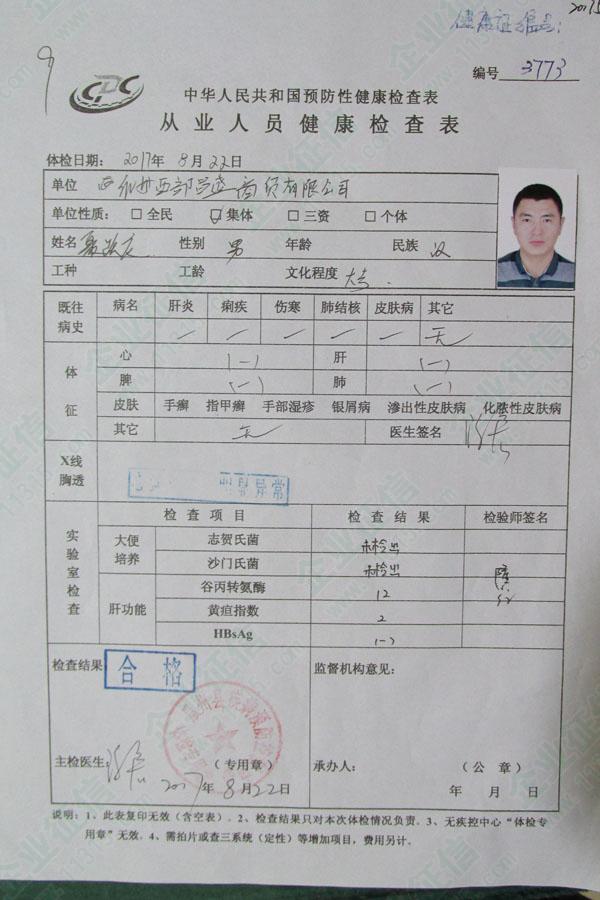 2017.5
健康证编号:
编号 3773
CDC
中华人民共和国预防性健康检查表
从业人员健康检查表
体检日期: 2017年 8月22日
单位 商贸有限公司
单位性质: □ 全民 ☑ 集体 □ 三资 □ 个体
姓名 性别 男 年龄 民族 汉
工种 工龄 文化程度 大专.
既往病史 病名 肝炎 痢疾 伤寒 肺结核 皮肤病 其它
— — — — — 无
体征 心 (—) 肝 (—)
脾 (—) 肺 (—)
皮肤 手癣 指甲癣 手部湿疹 银屑病 渗出性皮肤病 化脓性皮肤病
其它 无 医生签名
X线胸透 异常
实验室检查 检查项目 检查结果 检验师签名
大便培养 志贺氏菌 未检出
沙门氏菌 未检出
肝功能 谷丙转氨酶 12
黄疸指数 2
HBsAg (-)
检查结果 合格 监督机构意见:
主检医生: (专用章) 承办人: (公章)
2017年8月22日 年 月 日
说明: 1、此表复印无效(含空表)。2、检查结果只对本次体检情况负责。3、无疾控中心“体检专
用章”无效。4、需拍片或查三系统(定性)等增加项目,费用另计.